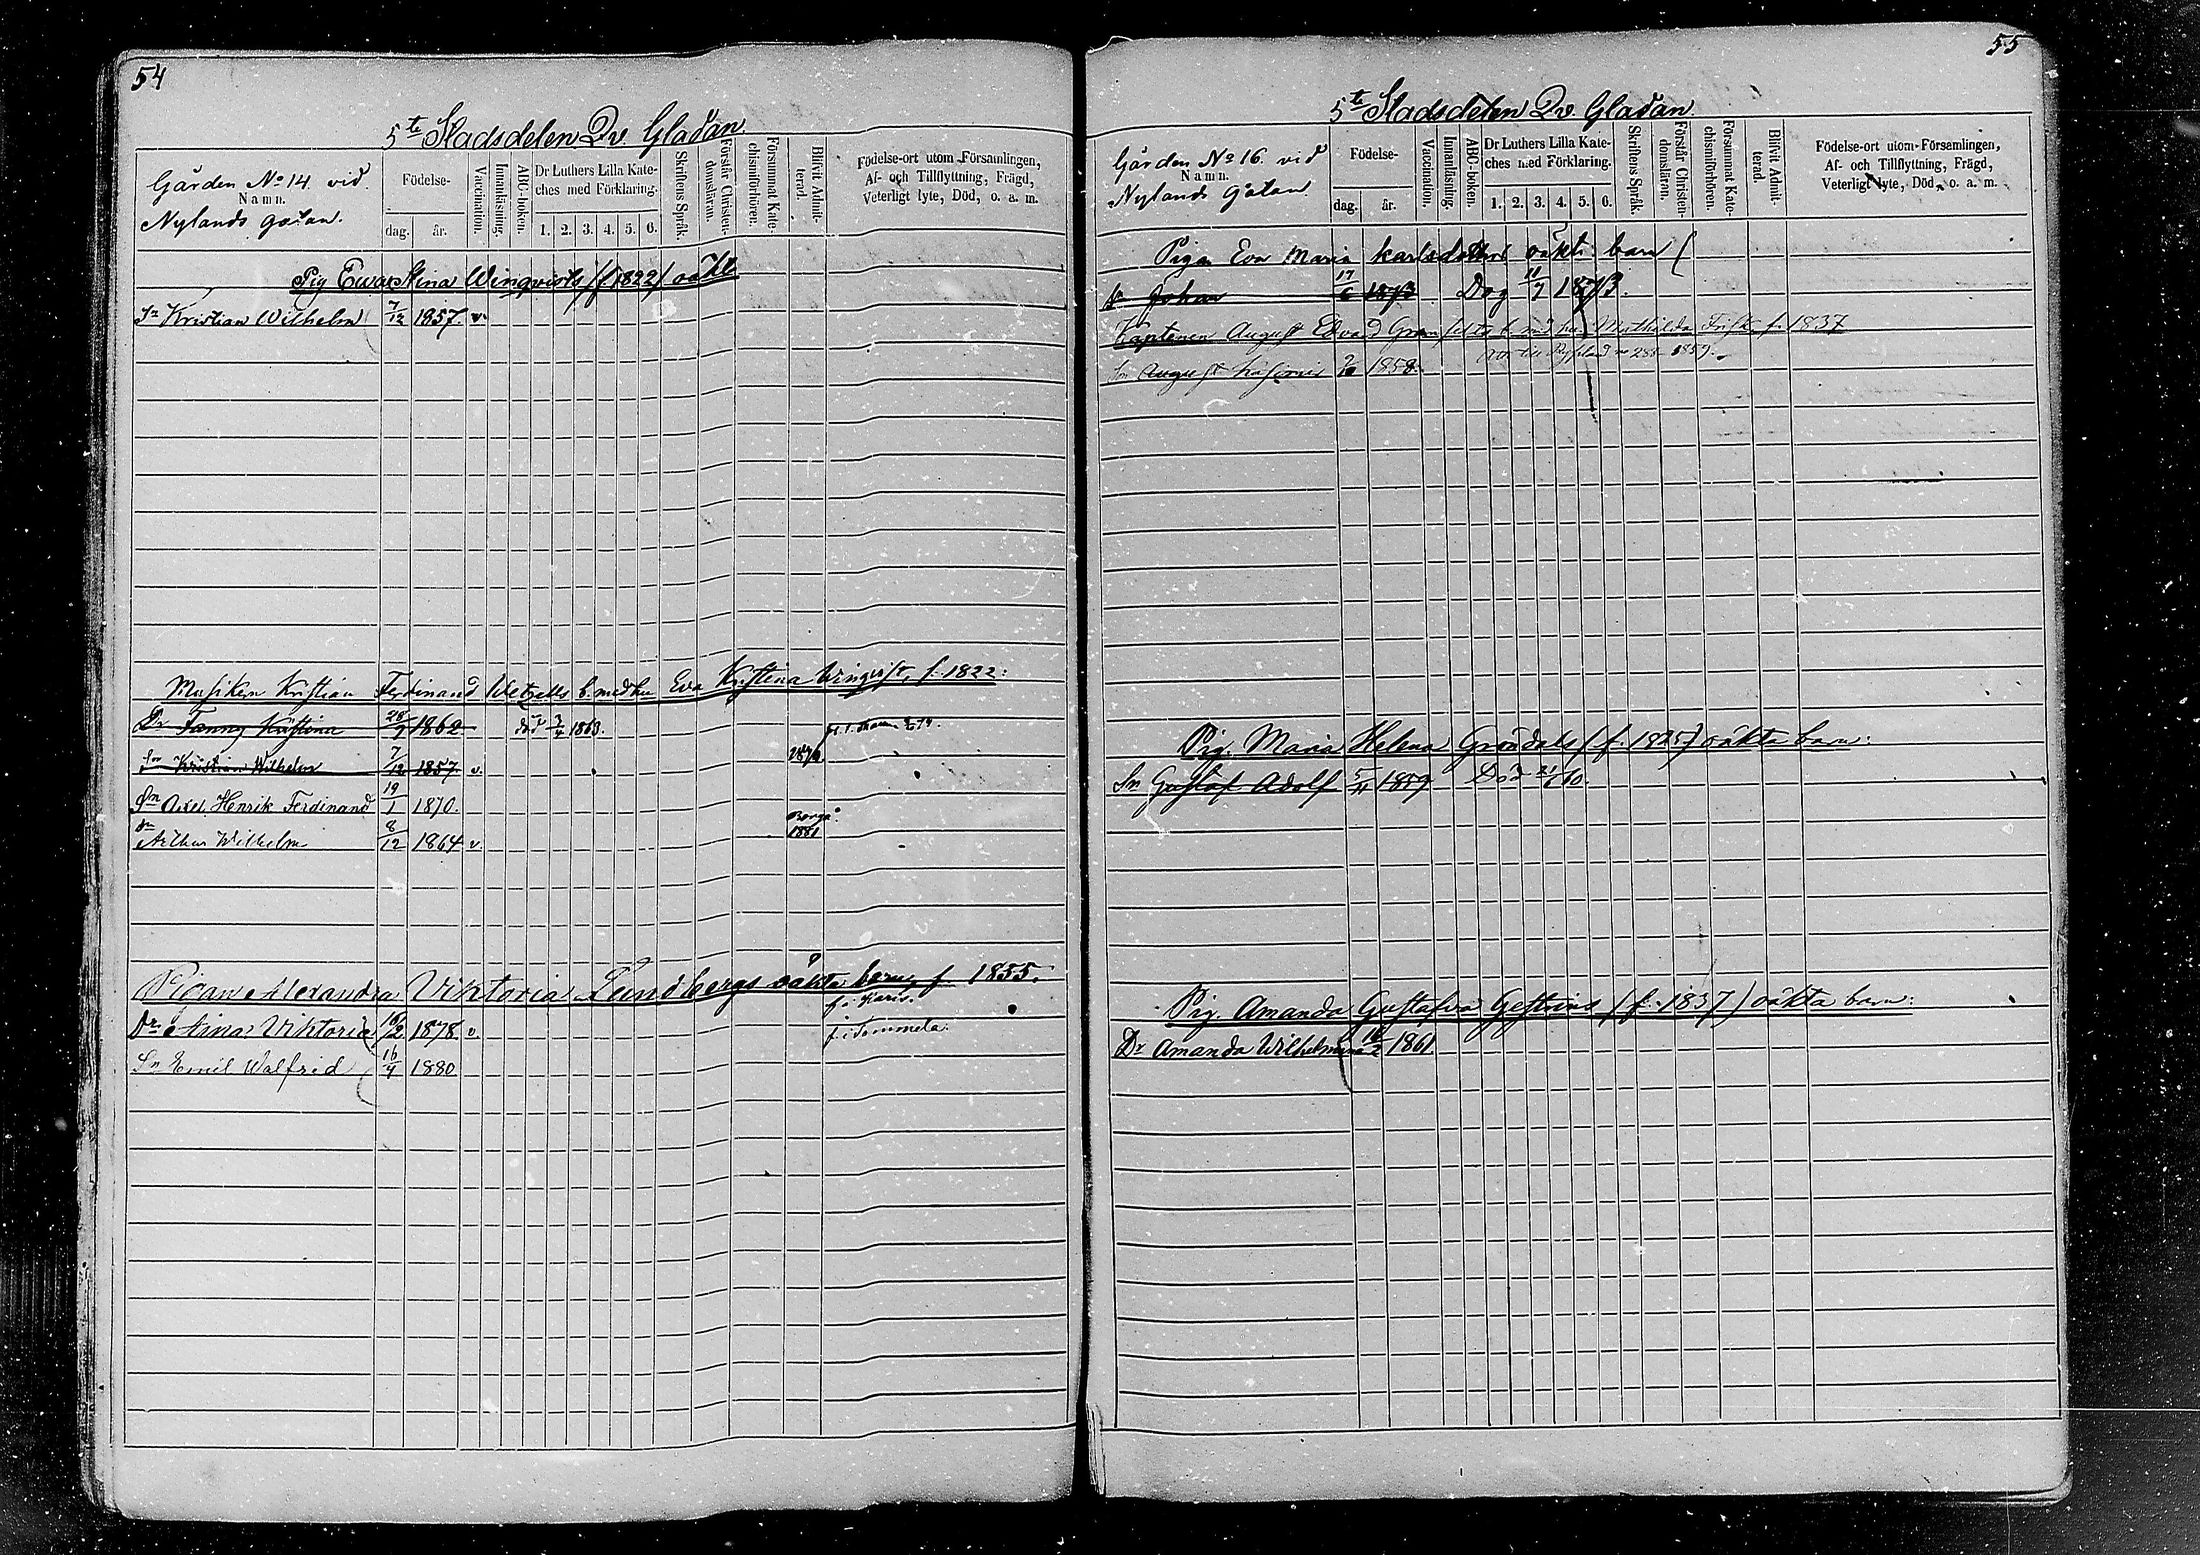 54
5te Stadsdelen Qv. Gladan
Gården No 14. vid
Namn.
Nylands gatan.
Födelse-
dag. år.
Vaccination.
Innanläsning.
ABC-boken.
Dr Luthers Lilla Kate-
ches med Förklaring.
1. 2. 3. 4. 5. 6.
Skriftens Språk.
Förstår Christen-
domsläran.
Försummat Kate-
chismiförhören.
Blifvit Admit-
terad.
Födelse-ort utom Församlingen,
Af- och Tillflyttning, Frägd,
Veterligt lyte, Död, o. a. m.
Pig Ewa Stina Winqvists (f 1822) oäkt
Sn Kristian Wilhelm 7/12 1857. v.
Musikern Kristian Ferdinand Wetzells b. med hu Eva Kristina Winqvist, f. 1822:
Dr Fanny Kristina 28/9 1862 död 3/4 1863.
Sn Kristian Wilhelm 7/12 1857 v. 1874
Sn Axel Henrik Ferdinand 19/1 1870.
Sn Arthur Wilhelm 8/12 1864 v. Borgå 1881
Pigan Alexandra Viktoria Lundbergs oäkta barn, f. 1855.
f. i Karis.
Dr Aina Viktoria 18/2 1878 v. f. i Tammela.
Sn Emil Walfrid 16/4 1880
55
5te Stadsdelen Qv. Gladan.
Gården No 16. vid
Namn.
Nylands gatan
Födelse-
dag. år.
Vaccination.
Innanläsning.
ABC-boken.
Dr Luthers Lilla Kate-
ches med Förklaring.
1. 2. 3. 4. 5. 6.
Skriftens Språk.
Förstår Christen-
domsläran.
Försummat Kate-
chismiförhören.
Blifvit Admit-
terad.
Födelse-ort utom-Församlingen,
Af- och Tillflyttning, Frägd,
Veterligt lyte, Död, o. a. m.
Pigan Eva Maria Karlsdotters oäkta barn (
Sn Johan 17/6 1873 Dog 11/7 1873.
Kaptenen August Edvard b. med hu Mathilda f. 1837
Sn August 1858. till Ryssland 1859.
Pig. Maria Helena Gröndals (f. 1825) oäkta barn:
Sn Gustaf Adolf 5/11 1859 Död 21/6 60.
Pig. Amanda Gustafva (f. 1837) oäkta barn:
Dr Amanda Wilhelmina 16/2 1861